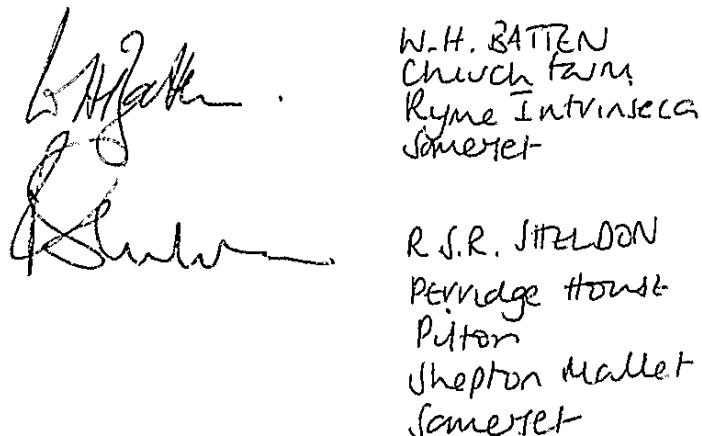 W.H. BATTEN
Church Farm
Ryme Intrinseca
Somerset
R.S.R. SHELDON
Perridge House
Pilton
Shepton Mallet
Somerset